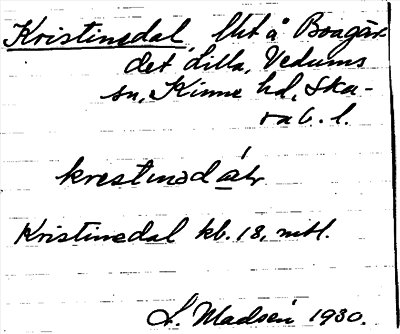 Kristinedal, Uts å Boagär
det Lilla, Vedums
sn, Kinne hd, Ska-
rab. l.
krestinədálr
Kristinedal kb. 18, mtl.
L. Madsén 1930.